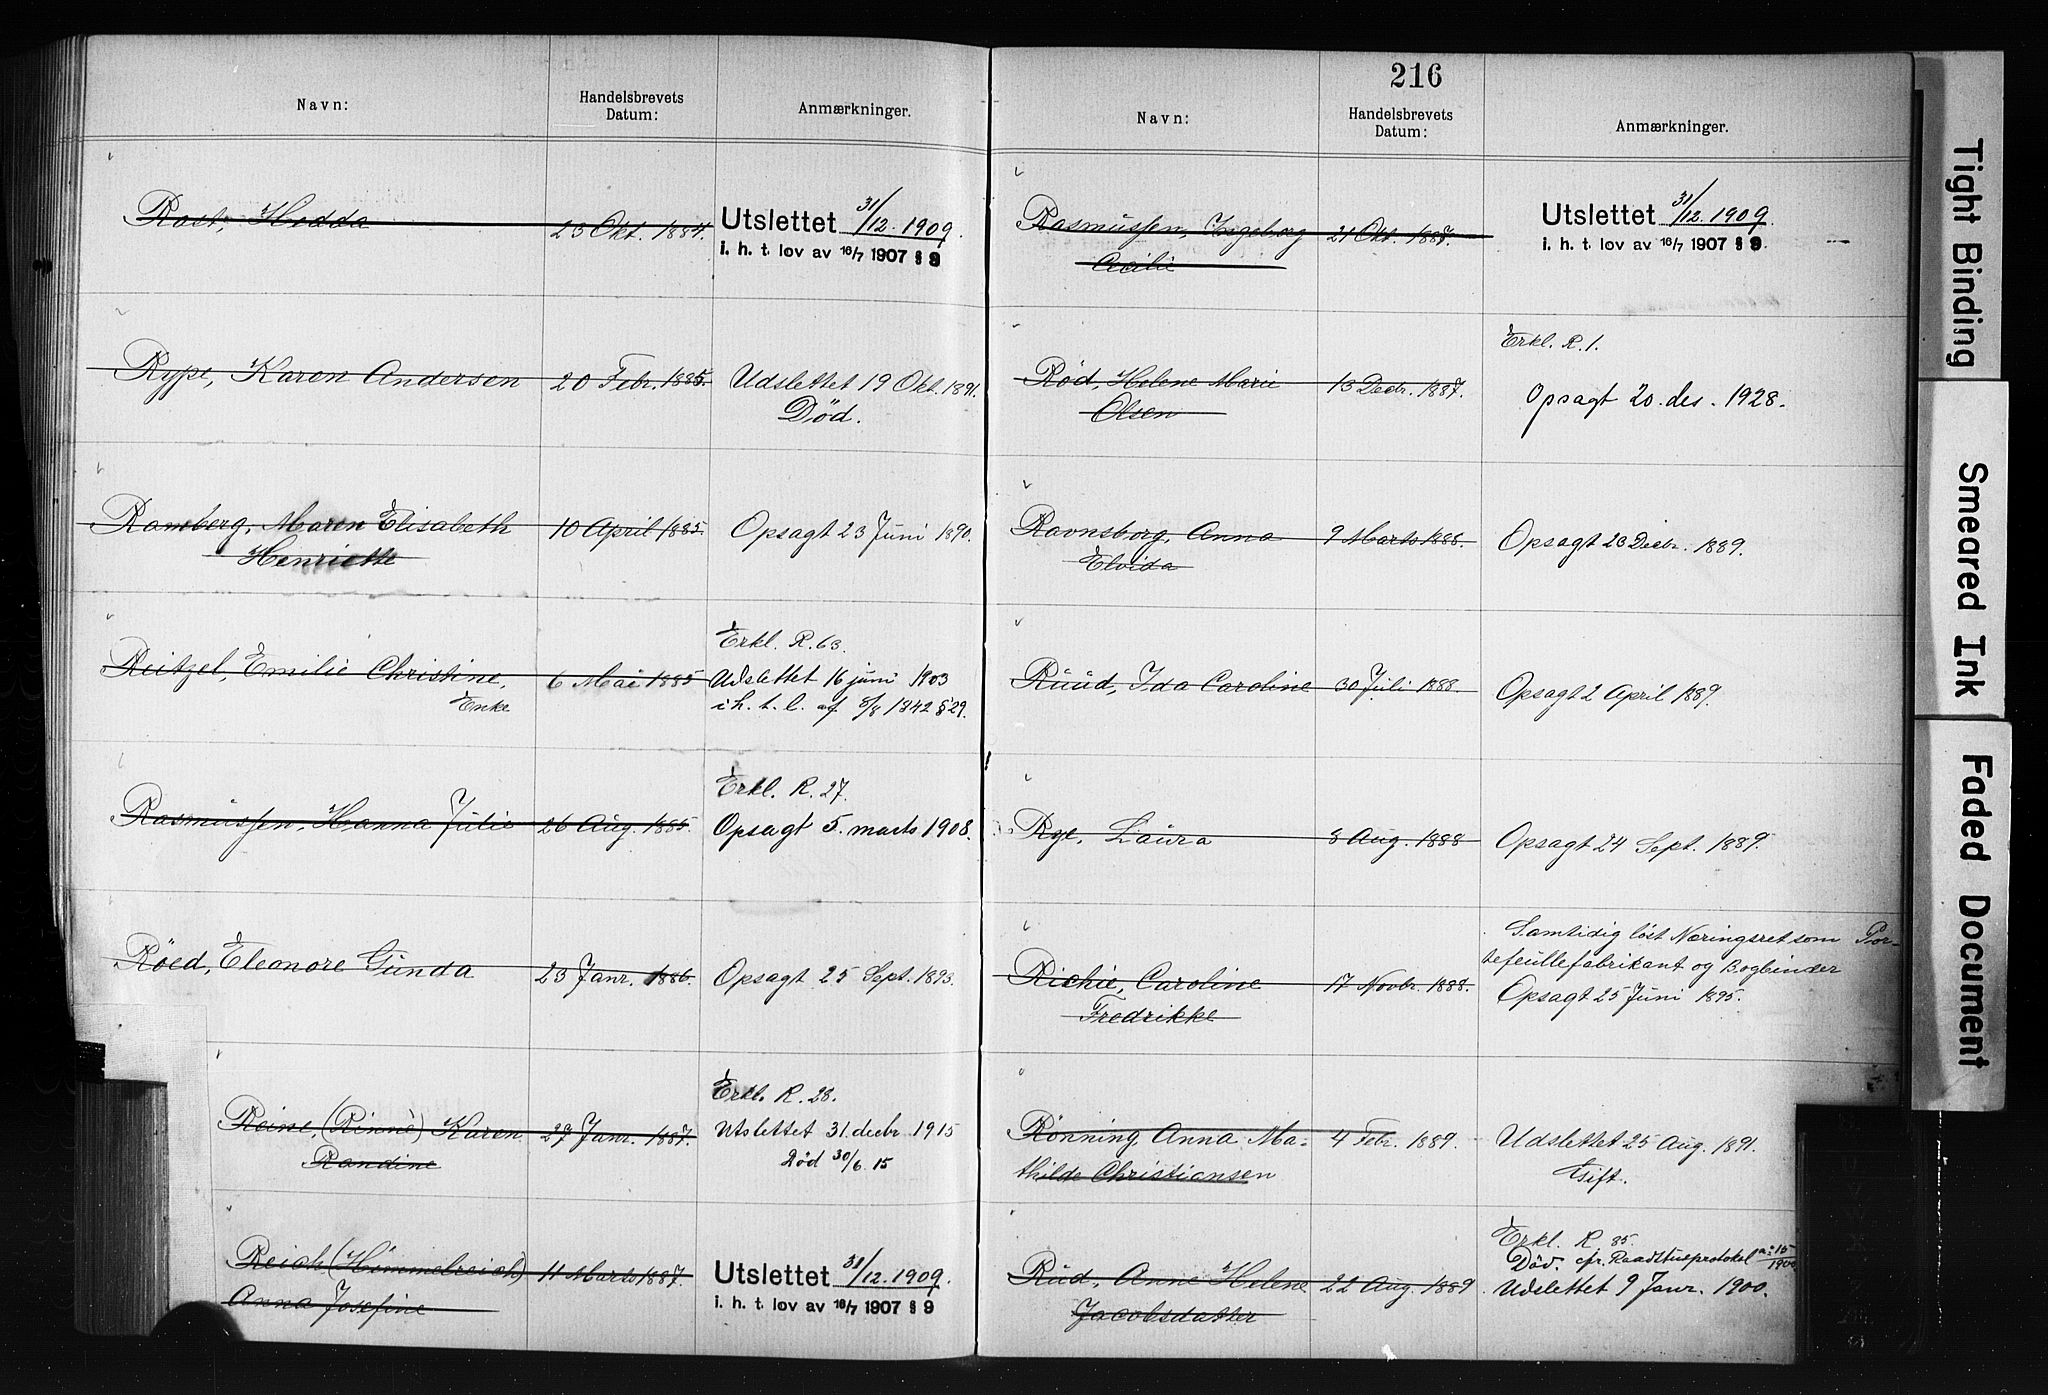 Navn:
Handelsbrevets
Datum:
Anmærkninger.
Rost, Hedda
23 Okt. 1884.
Utslettet 31/12. 1909.
i. h. t. lov av 16/7 1907 § 9
Rype, Karen Andersen
20 Febr. 1885.
Udslettet 19 Okt. 1891.
Död.
Ramberg, Maren Elisabeth
Henriette
10 April 1885.
Opsagt 23 Juni 1890.
Reitzel, Emilie Christine,
Enke
6 Mai 1885
Erkl. R. 63.
Udslettet 16 juni 1903
i h. t. l. af 8/8 1842 § 29.
Rasmussen, Hanna Julie
26 Aug. 1885.
Erkl. R. 27.
Opsagt 5. marts 1908.
Röed, Eleonore Gunda
23 Janr. 1886.
Opsagt 25 Sept. 1893.
Reine, (Rinne) Karen
Randine
27 Janr. 1887.
Erkl. R. 28.
Utslettet 31. decbr 1915
Död 30/6. 15
Reich (Himmelreich)
Anna Josefine
11 Marts 1887.
Utslettet 31/12. 1909.
i. h. t. lov av 16/7 1907 § 9
216
Navn:
Handelsbrevets
Datum:
Anmærkninger.
Rasmussen, Ingeborg
Cecilie
21 Okt. 1887.
Utslettet 31/12. 1909.
i. h. t. lov av 16/7 1907 § 9.
Röd, Helene Marie
Olsen
13 Decbr. 1887.
Erkl. R. 1.
Opsagt 20. des. 1928.
Ravnsborg, Anna
Elvida
9 Marts 1888.
Opsagt 23 Decbr. 1889.
Ruud, Ida Caroline
30 Juli 1888.
Opsagt 2 April 1889.
Rye, Laura
8 Aug. 1888
Opsagt 24 Sept. 1889.
Richie, Caroline
Fredrikke
17 Novbr. 1888.
Samtidig löst Næringsret som Por-
tefeuillefabrikant og Bogbinder
Opsagt 25 Juni 1895.
Rönning, Anna Ma-
thilde Christiansen
4 Febr. 1889.
Udslettet 25 Aug. 1891.
Gift.
Rud, Anne Helene
Jacobsdatter
22 Aug. 1889.
Erkl. R. 85.
Död. cfr. Raadstueprotokol a: 15/1900
Udslettet 9 Janr. 1900.
Tight Binding
Smeared Ink
Faded Document